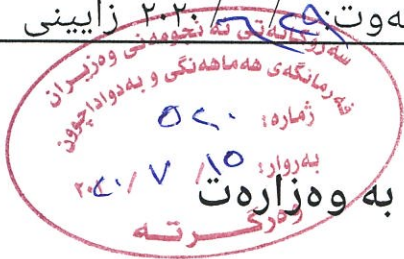 ەوت: ٢٩/٦/٢٠٢٠ زایینی
سەرۆکایەتی ئەنجومەنی وەزیران
فەرمانگەی هەماهەنگی و بەدواداچوون
ژمارە: ٥٢٠
بەروار: ١٥/٧/٢٠٢٠
بە وەزارەت
وەرگرتە